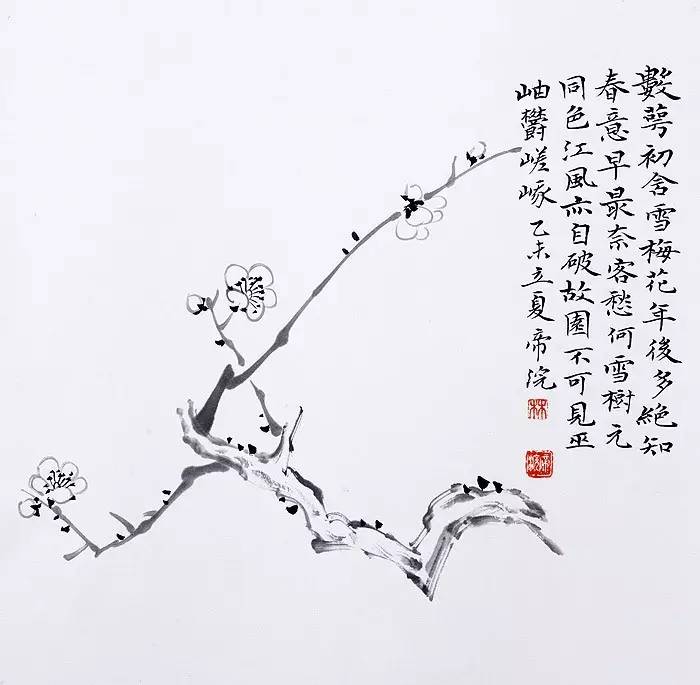 數萼初含雪梅花年後多絕知
春意早最奈客愁何雪樹元
同色江風亦自破故園不可見巫
岫欝嵯峨 乙未立夏帝浣